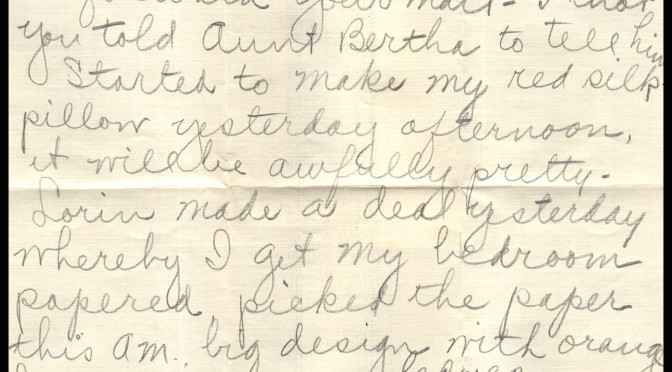 your mail - I
you told Aunt Bertha to tell him
Started to make my red silk
pillow yesterday afternoon,
it will be awfully pretty -
Lorin made a deal yesterday
whereby I get my bedroom
papered, picked the paper
this am. big design with orang